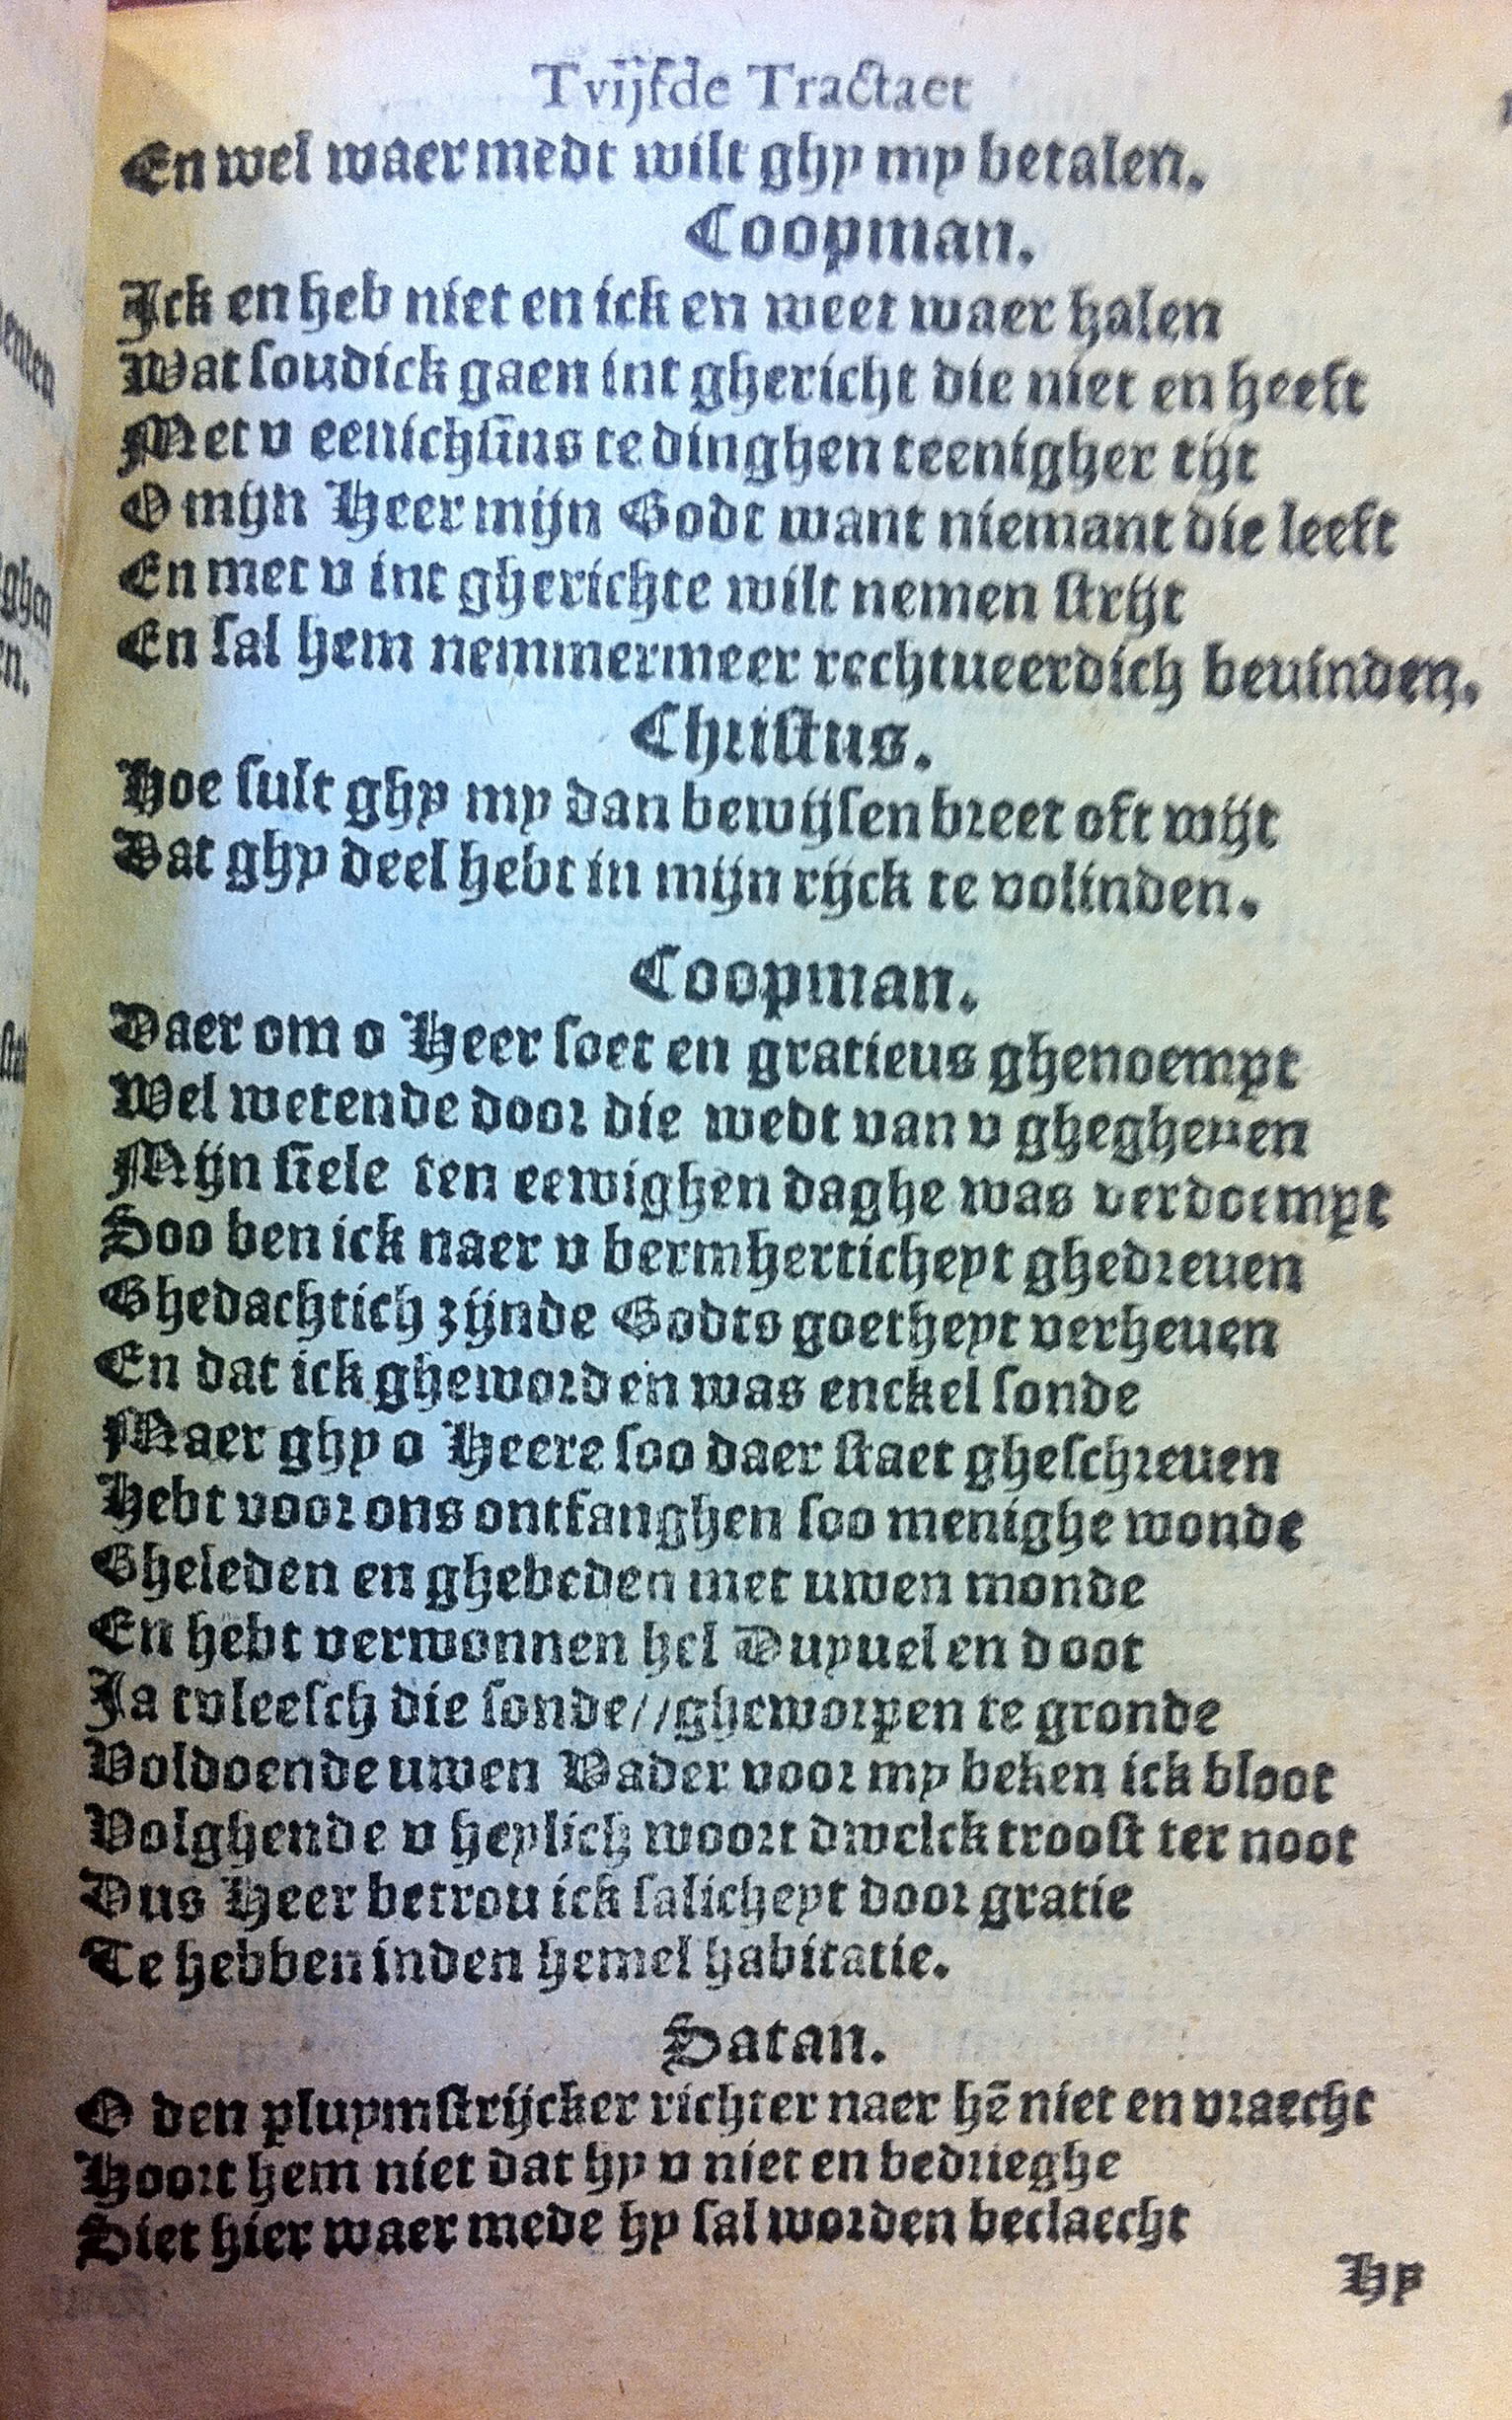 Tvijfde Tractaet
En wel waer medt wilt ghy my betalen.
Coopman.
Ick en heb niet en ick en weet waer halen
Wat soudick gaen int ghericht die niet en heeft
Met v eenichsĩns te dinghen teenigher tijt
O mijn Heer mijn Godt want niemant die leeft
En met v int gherichte wilt nemen strijt
En sal hem nemmermeer rechtueerdich beuinden.
Christus.
Hoe sult ghy my dan bewijsen breet oft wijt
Dat ghy deel hebt in mijn rijck te volinden.
Coopman.
Daer om o Heer soet en gratieus ghenoempt
Wel wetende door die wedt van v ghegheuen
Mijn siele ten eewighen daghe was verdoempt
Soo ben ick naer v bermherticheyt ghedreuen
Ghedachtich zijnde Godts goetheyt verheuen
En dat ick gheworden was enckel sonde
Maer ghy o Heere soo daer staet gheschreuen
Hebt voor ons ontfanghen soo menighe wonde
Gheleden en ghebeden met uwen monde
En hebt verwonnen hel Duyuel en doot
Ja tvleesch die sonde//gheworpen te gronde
Voldoende uwen Vader voor my beken ick bloot
Volghende v heylich woort dwelck troost ter noot
Dus Heer betrou ick salicheyt door gratie
Te hebben inden hemel habitatie.
Satan.
O den pluymstrijcker richter naer hẽ niet en vraecht
Hoort hem niet dat hy v niet en bedrieghe
Siet hier waer mede hy sal worden beclaecht
Hy